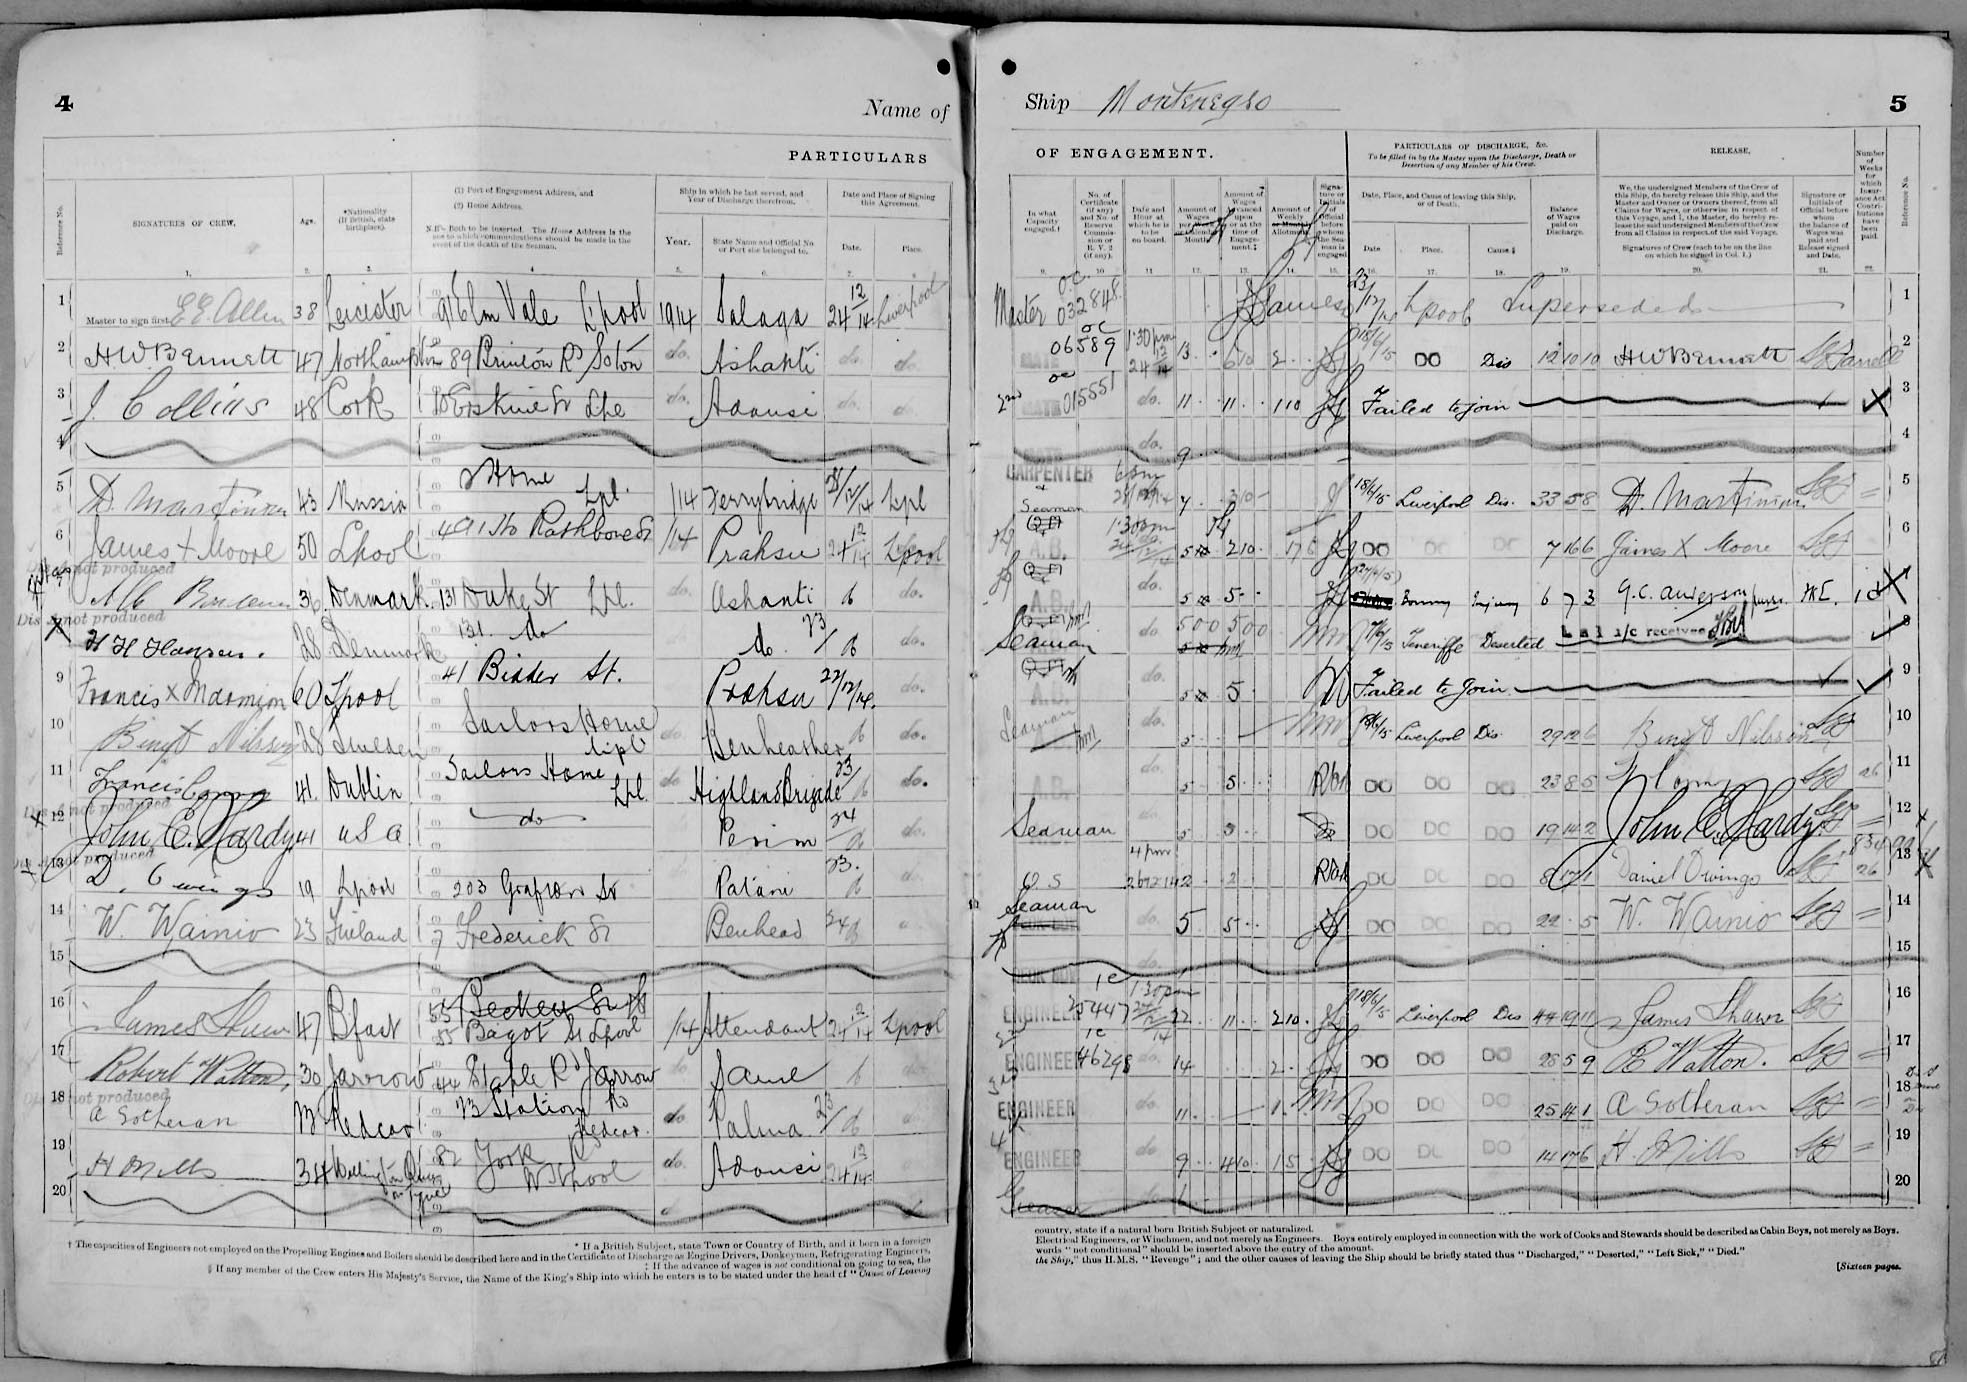 4
Name of
PARTICULARS
Reference No.
SIGNATURES OF CREW.
Age.
*Nationality (If British, state birthplace).
(1) Port of Engagement Address, and
(2) Home Address.
N.B.—Both to be inserted. The Home Address is the one to which communications should be made in the event of the death of the Seaman.
Ship in which he last served, and Year of Discharge therefrom.
Year.
State Name and Official No or Port she belonged to.
Date and Place of Signing this Agreement.
Date.
Place.
1 Master to sign first E E Allen 38 Leicester 91 Elm Vale L'pool 1914 Salaga 24 12/14 Liverpool
2 H W Bennett 47 Northampton 89 Brinton Rd Soton do. Ashanti do. do.
3 J Collins 48 Cork Erskine St Lpl do. Adansi do. do.
4
5 D. Martinson 43 Russia S Home Lpl. /14 Ferrybridge 28/12/14 Lpl
6 James + Moore 50 Lpool Rathbone St /14 Prahsu 24 12/14 Lpool
Dis A not produced
36. Denmark. 131 Duke St Lpl. do. Ashanti do.
Dis A not produced
H H Hansen. 28 Denmark 131. do do. 23/ do.
9 Francis X Marmion 60 Lpool 41 Bidder St. Prahsu 22/12/14. do.
10 Bingt Nilsson 28 Sweden Sailors Home Lipl Benheather do.
11 Francis 41. Dublin Sailors Home Lpl. do Highland Brigade 23/ do.
Dis A not produced
12 John E. Hardy 41 U S A do Perim 24 do.
Dis A not produced
13 D. Owings 19 Lpool 203 Grafton St Patani 23.
14 W. Wainio 23 Finland 7 Frederick St Benhead 24
15
16 James Shaw 47 Bfast 55 Beckett St 55 Bagot St Lpool /14 Attendant 24 12/14 Lpool
17 Robert Watton, 30 Jarrow 44 Staple Rd Jarrow do. Same
Dis A not produced
18 A Sotheran 23 Redcar 23 Station Rd Redcar. do. Palma 23/
19 H Mills 34 Wallington Quay on Tyne 82 York Rd W H'pool do. Adansi 24 12/14
20
* If a British Subject, state Town or Country of Birth, and if born in a foreign
† The capacities of Engineers not employed on the Propelling Engines and Boilers should be described here and in the Certificate of Discharge as Engine Drivers, Donkeymen, Refrigerating Engineers,
‡ If the advance of wages is not conditional on going to sea, the
§ If any member of the Crew enters His Majesty's Service, the Name of the King's Ship into which he enters is to be stated under the head of "Cause of Leaving
Ship Montenegro
5
OF ENGAGEMENT.
PARTICULARS OF DISCHARGE, &c.
To be filled in by the Master upon the Discharge, Death or Desertion of any Member of his Crew.
RELEASE,
In what Capacity engaged.†
No. of Certificate (if any) and No. of Reserve Commission or R.V. 2 (if any).
Date and Hour at which he is to be on board.
Amount of Wages per Week or Calendar Month.
Amount of Wages Advanced upon or at the time of Engagement.‡
Amount of Weekly or Monthly Allotment.
Signature or Initials of Official before whom the Seaman is engaged
Date, Place, and Cause of leaving this Ship, or of Death.
Date.
Place.
Cause.§
Balance of Wages paid on Discharge.
We, the undersigned Members of the Crew of this Ship, do hereby release this Ship, and the Master and Owner or Owners thereof, from all Claims for Wages, or otherwise in respect of this Voyage, and I, the Master, do hereby release the said undersigned Members of the Crew from all Claims in respect of the said Voyage.
Signatures of Crew (each to be on the line on which he signed in Col. 1.)
Signature or Initials of Official before whom the balance of Wages was paid and Release signed and Date.
Number of Weeks for which Insurance Act Contributions have been paid.
Reference No.
Master O.C. 032848. 23/12/14 Lpool Superseded 1
MATE OC 06589 1·30pm 24 12/14 13 6 10 2 18/6/15 DO Dis 12 10 10 H W Bennett 2
2nd MATE OC 015551 do. 11 11 1 10 Failed to join 3
do. 9 4
CARPENTER + Seaman 6am 7 3 10 18/6/15 Liverpool Dis. 33 5 8 D. Martinson 5
A.B. 1·30pm 5 2 10 17 6 DO DO DO 7 16 6 James X Moore 6
A.B. do. 5 5 Bonny Injury 6 7 3 G.C. Anderson purser
Seaman do. 5 0 0 5 0 0 Teneriffe Deserted L & I a/c received 8
A.B. do. 5 5 Failed to join 9
Seaman do. 5 Liverpool Dis. 29 12 6 Bingt Nilsson 10
A.B. do. 5 5 DO DO DO 23 8 5 26 11
Seaman do. 5 5 DO DO DO 19 14 2 John E. Hardy 12
O S 4 pm 2 2 DO DO DO Daniel Owings 26 13
Seaman do. 5 5 DO DO DO 22 5 W. Wainio 14
do. 15
ENGINEER 1C 25447 1·30pm 22 11 2 10 18/6/15 Liverpool Dis 44 19 11 James Shaw 16
2nd ENGINEER 1C 46298 do. 14 2 DO DO DO 28 5 9 R Watton. 17
3rd ENGINEER do. 11 1 DO DO DO 25 14 1 A Sotheran 18
4th ENGINEER do 9 4 10 1 5 DO DO DO 14 17 6 H. Mills 19
Greaser do 20
country, state if a natural born British Subject or naturalized.
Electrical Engineers, or Winchmen, and not merely as Engineers. Boys entirely employed in connection with the work of Cooks and Stewards should be described as Cabin Boys, not merely as Boys.
words "not conditional" should be inserted above the entry of the amount.
the Ship," thus H.M.S. "Revenge"; and the other causes of leaving the Ship should be briefly stated thus "Discharged," "Deserted," "Left Sick," "Died."
[Sixteen pages.